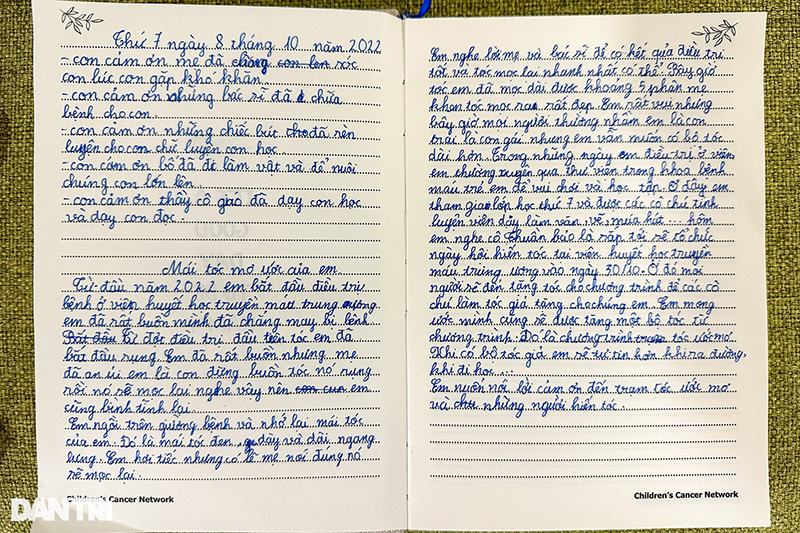 Thứ 7 ngày 8 tháng 10 năm 2022
- con cảm ơn mẹ đã chăng con lên sóc
con lúc con gặp khó khăn.
- con cảm ơn những bác sĩ đã chữa
bệnh cho con.
- con cảm ơn những chiếc bút cho đã rèn
luyện cho con chữ luyện con học
- con cảm ơn bố đã đi làm vất vả để nuôi
chúng con lớn lên.
- con cảm ơn thầy cô giáo đã dạy con học
và dạy con đọc.
Mái tóc mơ ước của em
Từ đầu năm 2022 em bắt đầu điều trị
bệnh ở viện huyết học truyền máu trung ương
em đã rất buồn mình đã chẳng may bị bệnh
Bắt đầu từ đợt điều trị đầu tiên tóc em đã
bắt đầu rụng. Em đã rất buồn nhưng mẹ
đã an ủi em là con đừng buồn tóc nó rụng
rồi nó sẽ mọc lại nghe vậy nên em
cũng bình tĩnh lại.
Em ngồi trên gường bệnh và nhớ lại mái tóc
của em. Đó là mái tóc đen, dày và dài ngang
lưng. Em hơi tiếc nhưng có lẽ mẹ nói đúng nó
sẽ mọc lại.
Children's Cancer Network
DÂN TRÍ
Em nghe lời mẹ và bác sĩ để có kết quả điều trị
tốt và tóc mọc lại nhanh nhất có thể. Bây giờ
tóc em đã mọc dài được khoảng 5 phân mẹ
khen tóc mọc ra rất đẹp. Em rất vui nhưng
bây giờ mọi người thường nhầm em là con
trai là con gái nhưng em vẫn muốn có bộ tóc
dài hơn. Trong những ngày em điều trị ở viện
em thường xuyên qua thư viện trong khoa bệnh
máu trẻ em để vui chơi và học tập. Ở đây em
tham gia lớp học thứ 7 và được các cô chú tình
luyện viên dạy làm văn, vẽ, múa hát... hôm
em nghe cô Thuần bảo là sắp tới sẽ tổ chức
ngày hội hiến tóc tại viện huyết học truyền
máu trung ương vào ngày 30/10. Ở đó mọi
người sẽ đến tặng tóc cho chương trình để các cô
chú làm tóc giả tặng cho chúng em. Em mong
ước mình cũng sẽ được tặng một bộ tóc từ
chương trình. Đó là chương trình tóc ước mơ.
Khi có bộ tóc giả em sẽ tự tin hơn khi ra đường,
khi đi học...
Em muốn nói lời cảm ơn đến trạm tóc ước mơ
và những người hiến tóc.
Children's Cancer Network